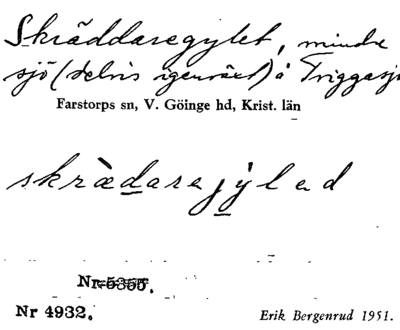 Skräddaregylet, mindre
sjö (delvis igenväxt) å Triggasjö
Farstorps sn, V. Göinge hd, Krist. län
skrædarejyled
Nr 5355.
Nr 4932.
Erik Bergenrud 1951.